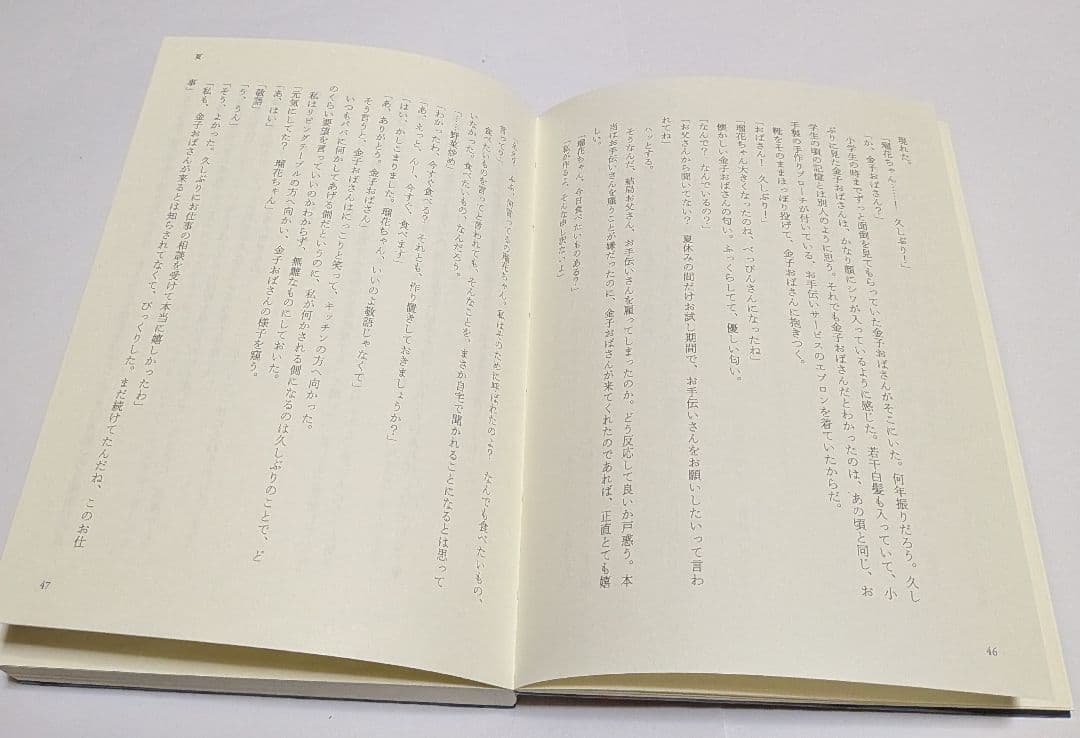 現れた。
「瑠花ちゃん……！　久しぶり！」
「か、金子おばさん？」
小学生の時までずっと面倒を見てもらっていた金子おばさんがそこにいた。何年振りだろう。久し
ぶりに見た金子おばさんは、かなり顔にシワが入っているように感じた。若干白髪も入っていて、小
学生の頃の記憶とは別人のように思う。それでも金子おばさんだとわかったのは、あの頃と同じ、お
手製の手作りブローチが付いている、お手伝いサービスのエプロンを着ていたからだ。
靴をそのままほっぽり投げて、金子おばさんに抱きつく。
「おばさん！　久しぶり！」
「瑠花ちゃん大きくなったのね、べっぴんさんになったね」
懐かしい金子おばさんの匂い。ふっくらしてて、優しい匂い。
「なんで？　なんでいるの？」
「お父さんから聞いてない？　夏休みの間だけお試し期間で、お手伝いさんをお願いしたいって言わ
れてね」
ハッとする。
そうなんだ、結局お父さん、お手伝いさんを雇ってしまったのか。どう反応して良いか戸惑う。本
当はお手伝いさんを雇うことが嫌だったのに、金子おばさんが来てくれたのであれば、正直とても嬉
しい。
「瑠花ちゃん、今日食べたいものある？」
「私が作るよ、そんな申し訳ないよ」
46
夏
瑠花ちゃん。私はそのために呼ばれたのよ？　なんでも食べたいもの、
言って？」
食べたいものを言ってと言われても、そんなことを、まさか自宅で聞かれることになるとは思って
いなかった。食べたいもの、なんだろう。
野菜炒め」
「わかった、今すぐ食べる？　それとも、作り置きしておきましょうか？」
「あ、えっと、んー、今すぐ、食べます」
「はい、かしこまりました。瑠花ちゃん、いいのよ敬語じゃなくて」
「あ、ありがとう。金子おばさん」
そう言うと、金子おばさんはにっこりと笑って、キッチンの方へ向かった。
いつもパパに何かしてあげる側だというのに、私が何かされる側になるのは久しぶりのことで、ど
のくらい要望を言っていいのかわからず、無難なものにしておいた。
私はリビングテーブルの方へ向かい、金子おばさんの様子を窺う。
「元気にしてた？　瑠花ちゃん」
「あ、はい」
「敬語」
「う、うん」
「そう、よかった。久しぶりにお仕事の相談を受けて本当に嬉しかったわ」
「私も、金子おばさんが来るとは知らされてなくて、びっくりした。まだ続けてたんだね、このお仕
事」
47